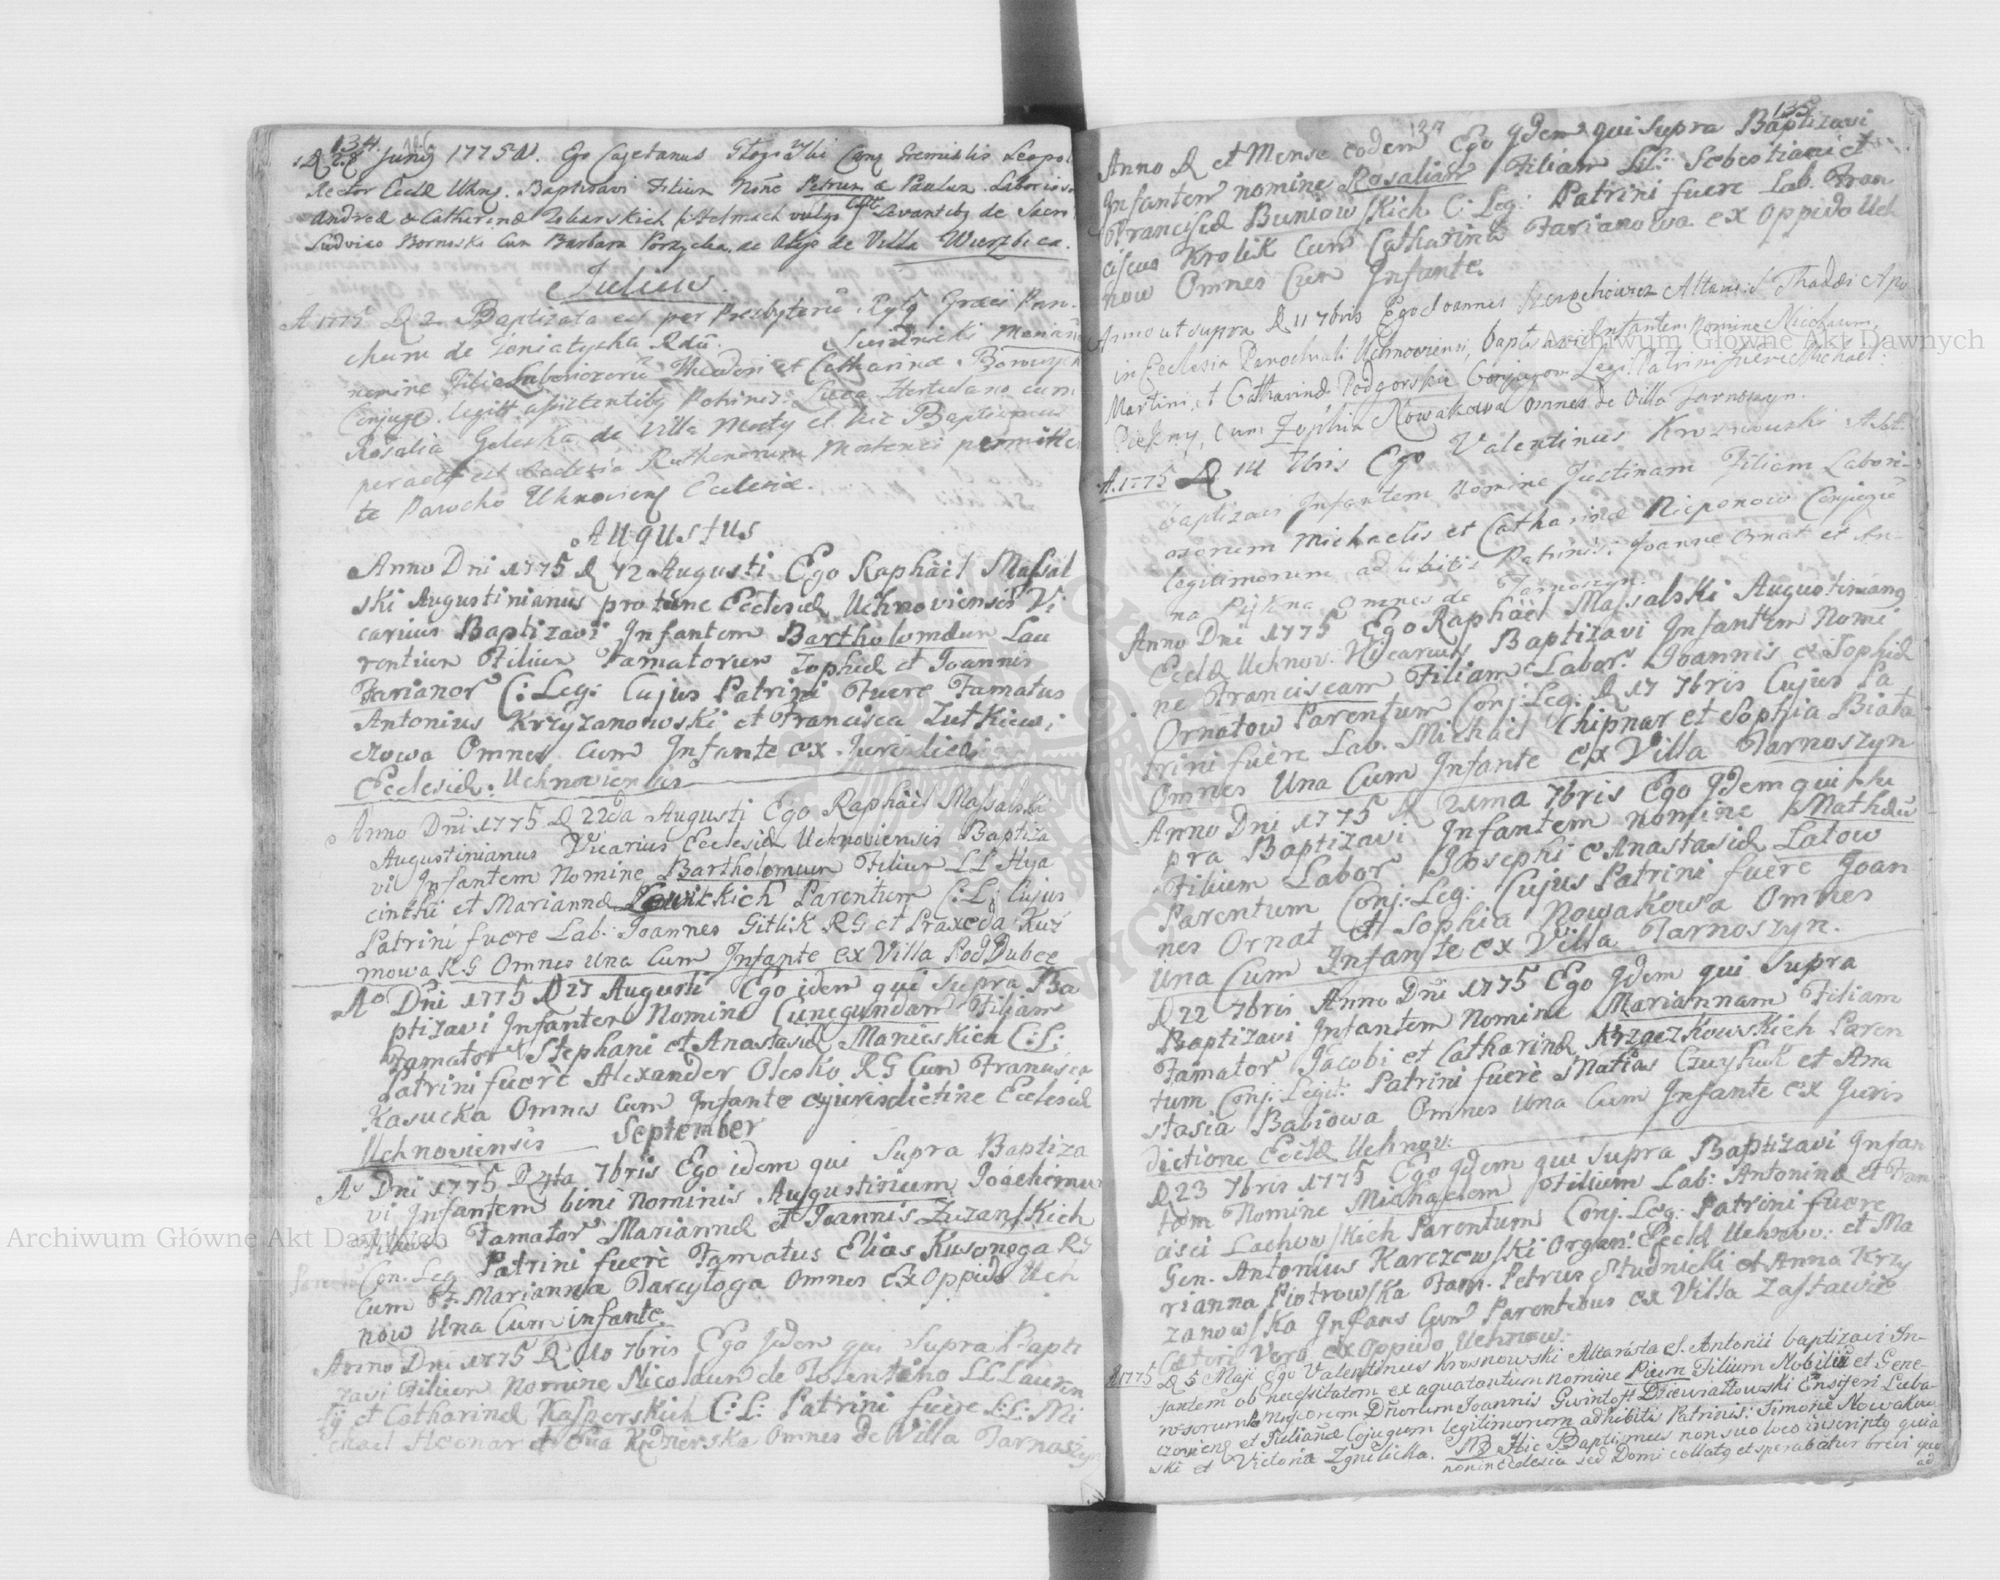 134.
D 28 Junij 1775 A. Ego Cajetanus
Rector Eccl Uhnov. Baptisavi Filium Petrum & Paulum Laborioso
Andreæ & Catherinæ vulgo Levantibg de Sacro
Ludvico cum Barbara de Villa Wierzbica.
Julius.
A 1775 D 2 Baptizata est per Presbyterũ Ryty Græci Paro-
chum de Rdũ. Mariañã
nomine Filia Laboriosorũ Theodori et Catharinæ
Conjugũ legitt: assistentibg Patrinis: Luca cum
Rosalia de Villa Mosty et hic Baptismus
peractg est Ecclesia Ruthenorum permitten
te Parocho Uhnoviens Ecclesiæ.
Augustus
Anno Dni 1775 D 12 Augusti Ego Raphäel Massal
ski Augustinianus pro tunc Ecclesiæ Uchnoviensis Vi
carius Baptizavi Infantem Bartholomæum Lau
rentium Filium Famatorum Zophiæ et Joannis
Farianor C: Leg: Cujus Patrini Fuere Famatus
Antonius Krzyzanowski et Francisca Zutkiewi:
czowa Omnes Cum Infante ex Jurisdictione
Ecclesiæ: Uchnoviensis
Anno Dni 1775 D 22da Augusti Ego Raphäel Massalski
Augustinianus Vicarius Ecclesiæ Uchnoviensis Baptiza
vi Infantem Nomine Bartholomeum Filium LL Hya
cinthi et Mariannæ Parentum C: L: Cujus
Patrini fuere Lab: Joannes Gitlik RG et Praxeda Kuź
mowa RG Omnes Una Cum Infante ex Villa PodDubce
Ao Dni 1775 D 27 Augusti Ego idem qui Supra Ba
ptizavi Infantem Nomine Cunegundam Filiam
Famator Stephani et Anastasiæ Manieskich C: L:
Patrini fuerè Alexander Olesko RG Cum Francisca
Kasucka Omnes Cum Infante ex jurisdictine Ecclesiæ
Uchnoviensis September
Ao Dni 1775 D 4ta 7bris Ego idem qui Supra Baptiza
vi Infantem bini Nominis Augustinum Joáchimum
Filium Famator Mariannæ et Joannis Zuzanskich
Con. Leg Patrini fuerè Famatus Elias Kusonoga RG
Cum Marianna Tarcyloga Omnes ex Oppido Uch
now Una Cum infante.
Anno Dni 1775 D 10 7bris Ego Idem qui Supra Bapti
zavi Filium Nomine Nicolaum de Tolentino LL Lauren
tij et Catharinæ Kasperskich C: L: Patrini fuere L: L: Mi
chael et Eva Kędzierska Omnes de Villa Tarnoszyn
135
137
Anno D et Mense eodem Ego Idem qui Supra Baptizavi
Infantem nomine Rosaliam Filiam Lil: Sebestiani et
Francisæ Buniowskich C: Leg: Patrini fuere Lab. Fran
ciscus Krolik Cum Catharina Farianowa ex Oppido Uch
now Omnes Cum Infante.
Anno ut supra D 11 7bris Ego Joannes Szerzchowicz Altari: S Thaddæi Apo
in Ecclesia Parochiali Uchnoviensi, baptisavi Infantem Nomine Nicolaum,
Martini, et Catharinæ Podgorskie Conjugum Leg: Patrini fuere Michael:
Piekny, cum Zophia Nowakowa omnes de Villa Tarnoszyn.
A. 1775 D 14 7bris Ego Valentinus Krosnowski Alt:
baptizavi Infantem Nomine Justinam Filiam Labori-
osorum Michaelis et Catharinæ Nieponow Conjugũ
legitimorum adhibitis Patrinis: Joanne Ornat et An-
na Piękna omnes de Tarnoszyn.
Anno Dni 1775 Ego Raphäel Massalski Augustiniang
Eccl Uchnov. Vicarius Baptizavi Infantem Nomi
ne Franciscam Filiam Labor: Joannis & Sophiæ
Ornatow Parentum Conj: Leg: D 17 7bris Cujus Pa
trini fuère Lab. Michael Chipnar et Sophia Biata
Omnes Una Cum Infante ex Villa Tarnoszyn
Anno Dni 1775 D 21ma 7bris Ego Idem qui Su
pra Baptizavi Infantem nomine Mathæũ
Filium Labor Josephi & Anastasiæ Latow
Parentum Conj: Leg: Cujus Patrini fuère Joan
nes Ornat et Sophia Nowakowa Omnes
Una Cum Infante ex Villa Tarnoszyn.
D 22 7bris Anno Dni 1775 Ego Idem qui Supra
Baptizavi Infantem Nomine Mariannam Filiam
Famator Jacobi et Catharinæ Krzaczkowskich Paren
tum Conj: Legit: Patrini fuerè Matias et Ana
stasia Babiowa Omnes Una Cum Infante ex Juris
dictione Eccl Uchnov:
D 23 7bris 1775 Ego Idem qui Supra Baptizavi Infan
tem Nomine Michaelem Filium Lab: Antoninæ et Fran
cisci Lachowskich Parentum Conj. Leg: Patrini fuere
Gen. Antonius Karczewski Organ: Eccl Uchnov: et Ma
rianna Piotrowska Fam. Petrus Studnicki et Anna Krzy
zanowska Infans Cum Parentibus ex Villa Zastawie
Cæteri Vero ex Oppido Uchnow:
A 1775 D 5 Maji Ego Valentinus Krosnowski Altarista S. Antonii baptizavi In-
fantem ob necessitatem ex aqua tantum nomine Pium Filium Nobiliũ et Gene-
rosorum Magcorum Dñorum Joannis Gwintoft Dziewiałtowski Ensiferi Luba-
czoviens et Julianæ Cojugum legitimorum adhibitis Patrinis: Simone Nowakow
ski et Victoria Zgnilicka. NB Hic Baptismus non suo loco inscriptg quia
non in Ecclesia sed Domi collatg et sperabatur brevi quo
ad
Archiwum Główne Akt Dawnych
Archiwum Główne Akt Dawnych